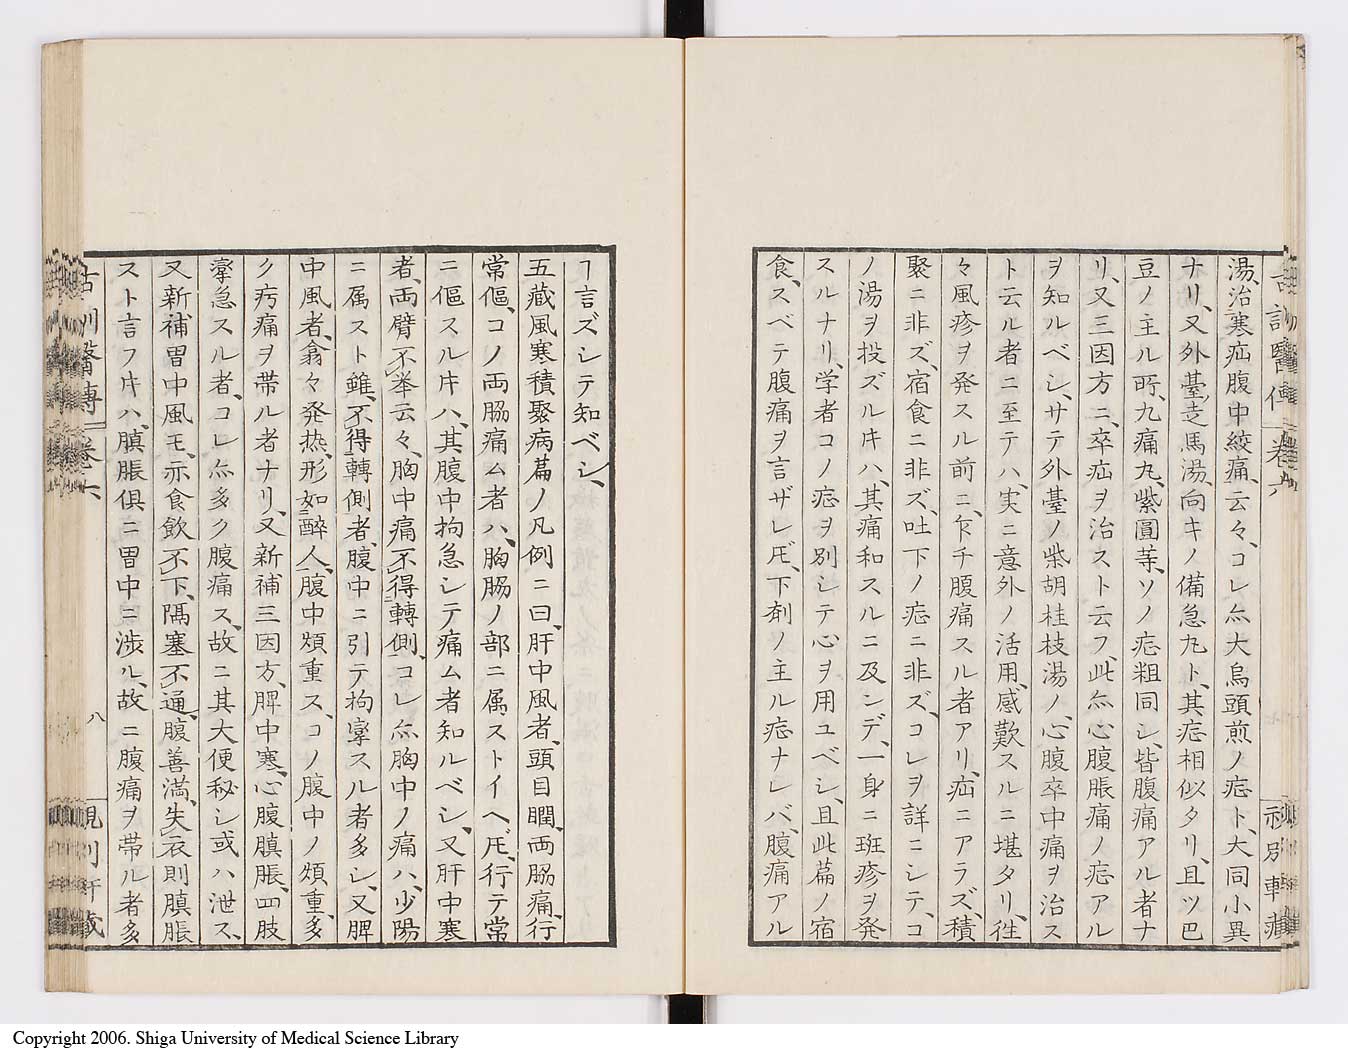 湯、治寒疝腹中絞痛、云々、コレ亦大烏頭煎ノ症ト、大同小異
ナリ、又外臺走馬湯、向キノ備急丸ト、其症相似タリ、且ツ巴
豆ノ主ル所、九痛丸、紫圓䓁、ソノ症粗同シ、皆腹痛アル者ナ
リ、又三因方ニ、卒疝ヲ治スト云フ、此亦心腹脹痛ノ症アル
ヲ知ルベシ、サテ外臺ノ柴胡桂枝湯ノ、心腹卒中痛ヲ治ス
ト云ル者ニ至テハ、実ニ意外ノ活用、感歎スルニ堪タリ、徃
々風疹ヲ発スル前ニ、乍チ腹痛スル者アリ、疝ニアラズ、積
聚ニ非ズ、宿食ニ非ズ、吐下ノ症ニ非ズ、コレヲ詳ニシテ、コ
ノ湯ヲ投ズル𪜈ハ、其痛和スルニ及ンデ、一身ニ斑疹ヲ発
スルナリ、学者コノ症ヲ別シテ心ヲ用ユベシ、且此篇ノ宿
食、スベテ腹痛ヲ言ザレ𪜈、下剤ノ主ル症ナレバ、腹痛アル
ヿ言ズシテ知ベシ、
五蔵風寒積聚病篇ノ凡例ニ曰、肝中風者、頭目瞤、両脇痛、行
常傴、コノ両脇痛ム者ハ、胸脇ノ部ニ属ストイヘ𪜈、行テ常
ニ傴スル𪜈ハ、其腹中拘急シテ痛ム者知ルベシ、又肝中寒
者、両臂不挙云々、胸中痛、不得轉側、コレ亦胸中ノ痛ハ、少陽
ニ属スト雖、不得轉側者、腹中ニ引テ拘攣スル者多シ、又脾
中風者、翕々発热、形如醉人、腹中煩重ス、コノ腹中ノ煩重、多
ク疞痛ヲ帯ル者ナリ、又新補三因方、脾中寒、心腹䐜脹、四肢
攣急スル者、コレ亦多ク腹痛ス、故ニ其大便秘シ或ハ泄ス、
又新補胃中風モ、亦食飲不下、隔塞不通、腹善満、失衣則䐜脹
スト言フ𪜈ハ、䐜脹倶ニ胃中ニ渉ル、故ニ腹痛ヲ帯ル者多
古訓醫傳 卷六
八